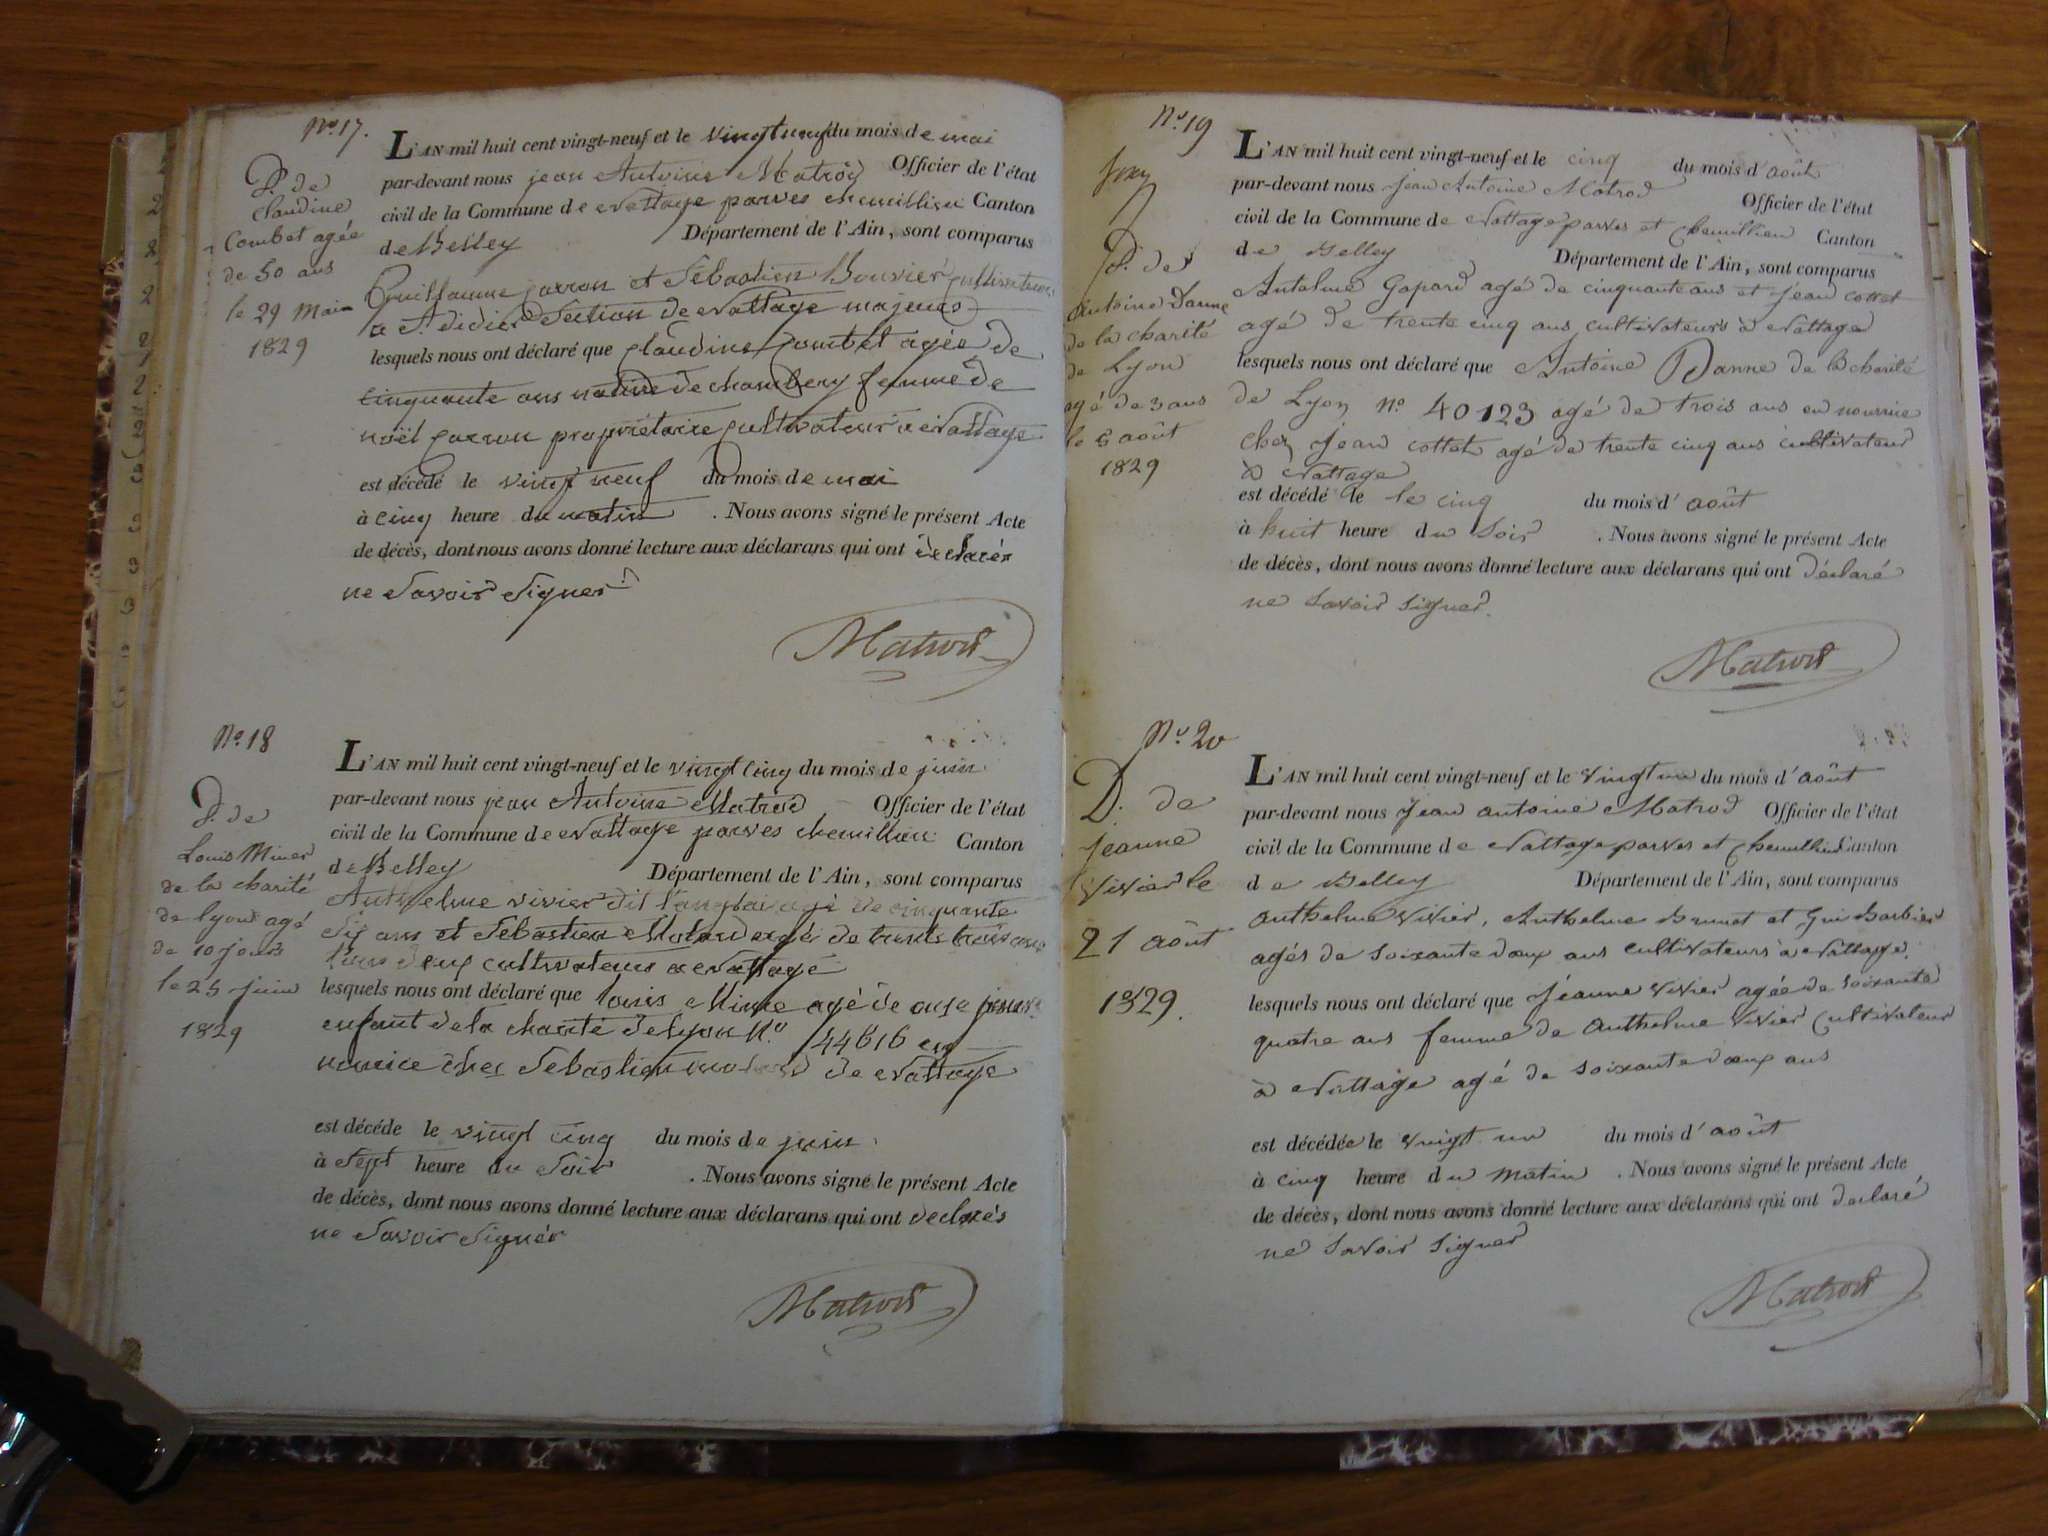 No. 17.
D. de
Claudine
Combet agée
de 50 ans
le 29 Mai
1829
L'AN mil huit cent vingt-neuf et le vingt neuf du mois de mai
par-devant nous jean Antoine Matrod Officier de l'état
civil de la Commune de Nattage parves chemillieu Canton
de Belley Département de l'Ain, sont comparus
Guillaume garron et Sébastien Bouvier cultivateurs
a St. didier Section de Nattage majeurs
lesquels nous ont déclaré que Claudine Combet agée de
cinquante ans native de chambery femme de
noël garron propriétaire cultivateur a Nattage
est décédé le vingt neuf du mois de mai
à cinq heure du matin . Nous avons signé le présent Acte
de décès, dont nous avons donné lecture aux déclarans qui ont déclarés
ne Savoir Signer
Matrod
No. 18
D. de
Louis Miner
de la charité
de lyon agé
de 10 jours
le 25 juin
1829
L'AN mil huit cent vingt-neuf et le vingt cinq du mois de juin
par-devant nous jean Antoine Matrod Officier de l'état
civil de la Commune de Nattage parves chemillieu Canton
de Belley Département de l'Ain, sont comparus
Anthelme vivier dit l'anglai agé de cinquante
six ans et Sébastien agé de trente trois ans
tous deux cultivateurs a Nattage
lesquels nous ont déclaré que louis agé de onze jours
enfant de la charité de lyon No. 44616 en
nourice chez Sebastien de Nattage
est décéde le vingt cinq du mois de juin
à Sept heure du Soir . Nous avons signé le présent Acte
de décès, dont nous avons donné lecture aux déclarans qui ont declarés
ne Savoir Signér
Matrod
No. 19
D. de
Antoine Danne
de la charité
de Lyon
agé de 3 ans
le 5 août
1829
L'AN mil huit cent vingt-neuf et le cinq du mois d'août
par-devant nous Jean Antoine Matrod Officier de l'état
civil de la Commune de Nattage parves et Chemillieu Canton
de Belley Département de l'Ain, sont comparus
Antelme Gapard agé de cinquante ans et jean cottet
agé de trente cinq ans cultivateurs à Nattage
lesquels nous ont déclaré que Antoine Danne de la charité
de Lyon No. 40123 agé de trois ans en nourrice
chez jean cottet agé de trente cinq ans cultivateur
à Nattage
est décédé le le cinq du mois d'août
à huit heure du Soir . Nous avons signé le présent Acte
de décès, dont nous avons donné lecture aux déclarans qui ont déclaré
ne Savoir Signer.
Matrod
No. 20
D. de
jeanne
vivier le
21 août
1829.
L'AN mil huit cent vingt-neuf et le vingt un du mois d'août
par-devant nous jean antoine Matrod Officier de l'état
civil de la Commune de Nattage parves et Chemillieu Canton
de Belley Département de l'Ain, sont comparus
anthelme vivier, Anthelme Brunet et Gui Barbier
agés de soixante deux ans cultivateurs à Nattage.
lesquels nous ont déclaré que jéanne vivier agée de soixante
quatre ans femme de anthelme vivier Cultivateur
à Nattage agé de soixante deux ans
est décédée le vingt un du mois d'août
à cinq heure du matin . Nous avons signé le présent Acte
de décès, dont nous avons donné lecture aux déclarans qui ont declaré
ne Savoir Signer
Matrod